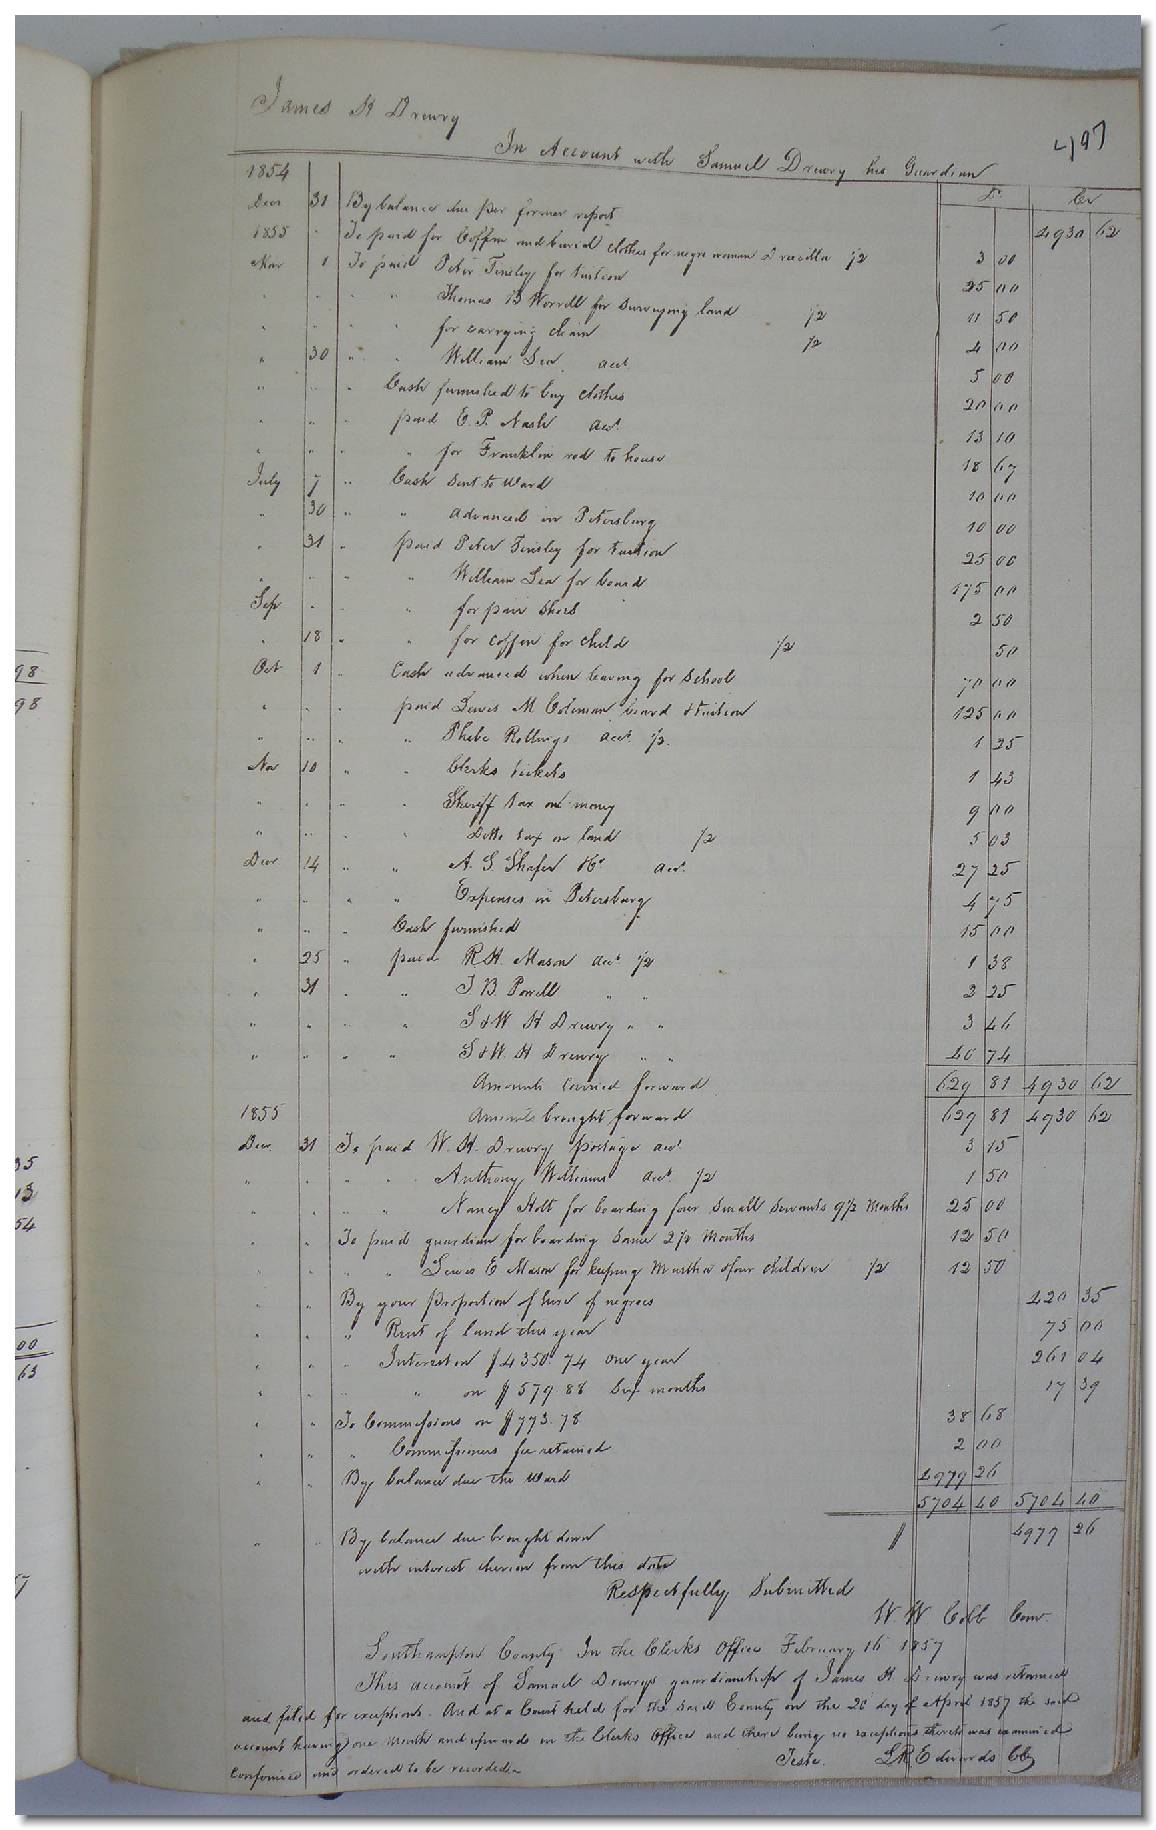 98
98
35
13
54
00
63
497
James H Drewry
In Account with Samuel Drewry his Guardian
1854 Dr Cr
Decr 31 By balance due per former report 4930 62
1855 To paid for Coffin and burial clothes for negro woman Druscilla 1/2 3 00
Mar 1 To paid Peter Tinsley for tuition 25 00
" " " " Thomas B Worrell for Surveying land 1/2 11 50
" " " " for carrying chain 1/2 4 00
" 30 " " William Lea acct 5 00
" " " Cash furnished to buy clothes 20 00
" " " paid E. P. Nash acct 13 10
" " " " for Franklin rod to house 18 67
July 7 " Cash sent to Ward 10 00
" 30 " " advanced in Petersburg 10 00
" 31 " paid Peter Tinsley for tuition 25 00
" " " " William Lea for board 175 00
Sep " " for pair Shoes 2 50
" 18 " " for coffin for child 1/2 50
Oct 1 " Cash advanced when leaving for School 70 00
" " " paid Lewis M Coleman board & tuition 125 00
" " " " Phebe Rollings acct 1/2 1 25
Nov 10 " " Clerks tickets 1 43
" " " " Sheriff tax on money 9 00
" " " " Ditto tax on land 1/2 5 03
Decr 14 " " A. G. Shafer acct 27 25
" " " " Expenses in Petersburg 4 75
" " " Cash furnished 15 00
" 25 " paid R. H. Mason acct 1/2 1 38
" 31 " " J. B. Powell " " 2 25
" " " " S & W H Drewry " " 3 46
" " " " S & W. H Drewry " " 40 74
Amounts carried forward 629 81 4930 62
1855 Amounts brought forward 629 81 4930 62
Dec. 31 To paid W. H. Drewry postage acct 3 15
" " " " Anthony Williams acct 1/2 1 50
" " " " Nancy Holt for boarding four Small Servants 9 1/2 Months 25 00
" " To paid guardian for boarding Same 2 1/2 Months 12 50
" " " " Lewis E Mason for keeping Martha & four children 1/2 12 50
" " By your proportion of hire of negroes 420 35
" " " Rent of land this year 75 00
" " " Interest on $4350.74 one year 261 04
" " " " on $579.88 Six months 17 39
" " To Commissions on $773.78 38 68
" " " Commissioners fee retained 2 00
" " By balance due the Ward 4979 26
5704 40 5704 40
" " By balance due brought down $ 4979 26
with interest thereon from this date
Respectfully Submitted
W. W Cobb Com.
Southampton County In the Clerks Office February 16 1857
This account of Samuel Drewrys guardianship of James H Drewry was returned
and filed for exceptions. And at a Court held for the said County on the 20 day of April 1857 the said
account having one month and upwards in the Clerks Office and there being no exceptions thereto was examined
confirmed and ordered to be recorded.
Teste. L R Edwards CC